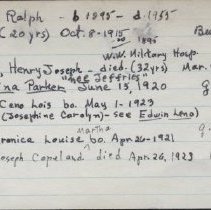 Ralph - b 1895 - d 1955
(20 yrs) Oct. 8-1915 Be
20 1895
W.W. Military Hosp.
, Henry Joseph - died (32 yrs) Mar.
"nee Jeffries"
na Parker June 15, 1920 g
Ceno Lois bo. May 1-1923
(Josephine Carolyn - see Edwin Leno)
Martha
eronica Louise bo. Apr. 26-1921 g
oseph Copeland died Apr. 26, 1923